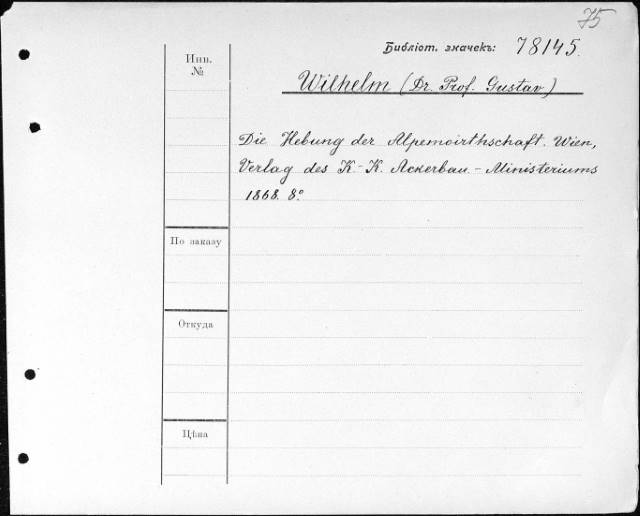 75
Библіот. значекъ: 78145.
Инв.
№
Wilhelm (Dr. Prof. Gustav)
Die Hebung der Alpenwirthschaft. Wien,
Verlag des K.-K. Ackerbau-Ministeriums
1868. 8°.
По заказу
Откуда
Цѣна